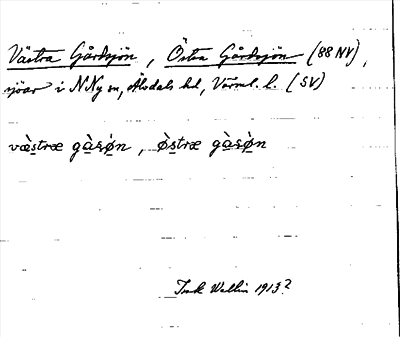 Västra Gårdsjön, Östra Gårdsjön (88 NV),
sjöar i N Ny sn, Älvdals hd, Värml. l. (SV)
væ̀stræ gàsø̀n, ø̀stræ gàsø̀n
Wallin 1913?